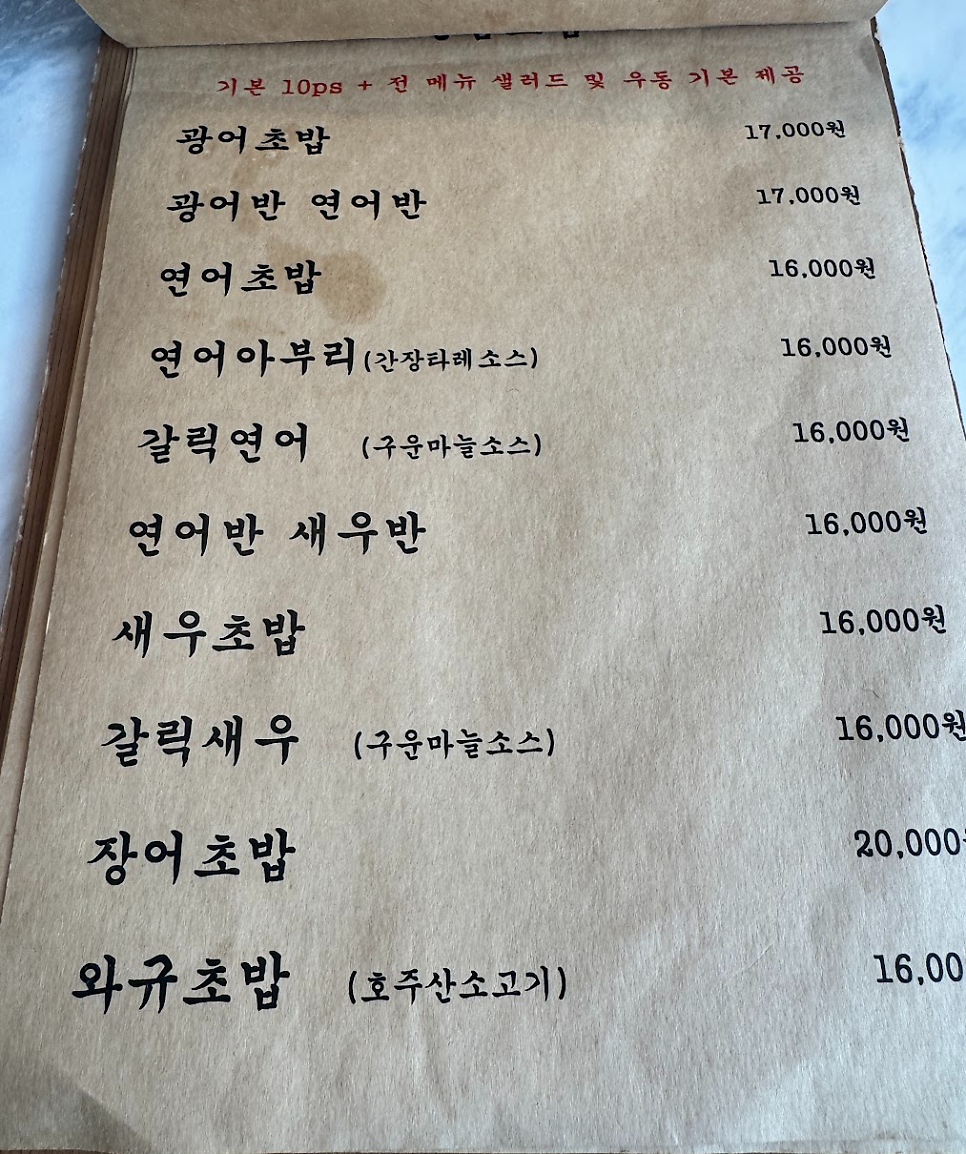 기본 10ps + 전 메뉴 샐러드 및 우동 기본 제공
광어초밥 17,000원
광어반 연어반 17,000원
연어초밥 16,000원
연어아부리(간장타레소스) 16,000원
갈릭연어 (구운마늘소스) 16,000원
연어반 새우반 16,000원
새우초밥 16,000원
갈릭새우 (구운마늘소스) 16,000원
장어초밥 20,000
와규초밥 (호주산소고기) 16,00